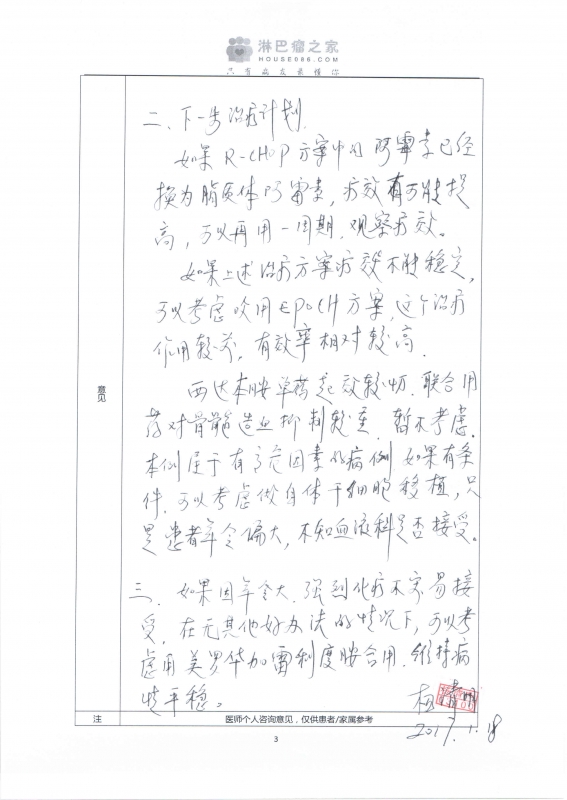 淋巴瘤之家
HOUSE086.COM
只有病友最懂你
意见
二、下一步治疗计划.
如果 R-CHOP 方案中的阿霉素已经
换为脂质体阿霉素，疗效有可能提
高，可以再用一周期，观察疗效。
如果上述治疗方案疗效不能稳定，
可以考虑改用EPOCH方案，这个治疗
作用较，有效率相对较高.
西达本胺单药起效较，联合用
药对骨髓造血抑制较重，暂不考虑.
本例属于有高危因素的病例，如果有条
件，可以考虑做自体干细胞移植，只
是患者年令偏大，不知血液科是否接受。
三、如果因年令大，强烈化疗不容易接
受，在无其他好办法的情况下，可以考
虑用美罗华加雷利度胺合用，维持病
情平稳。
2017.1.18
注
医师个人咨询意见，仅供患者/家属参考
3